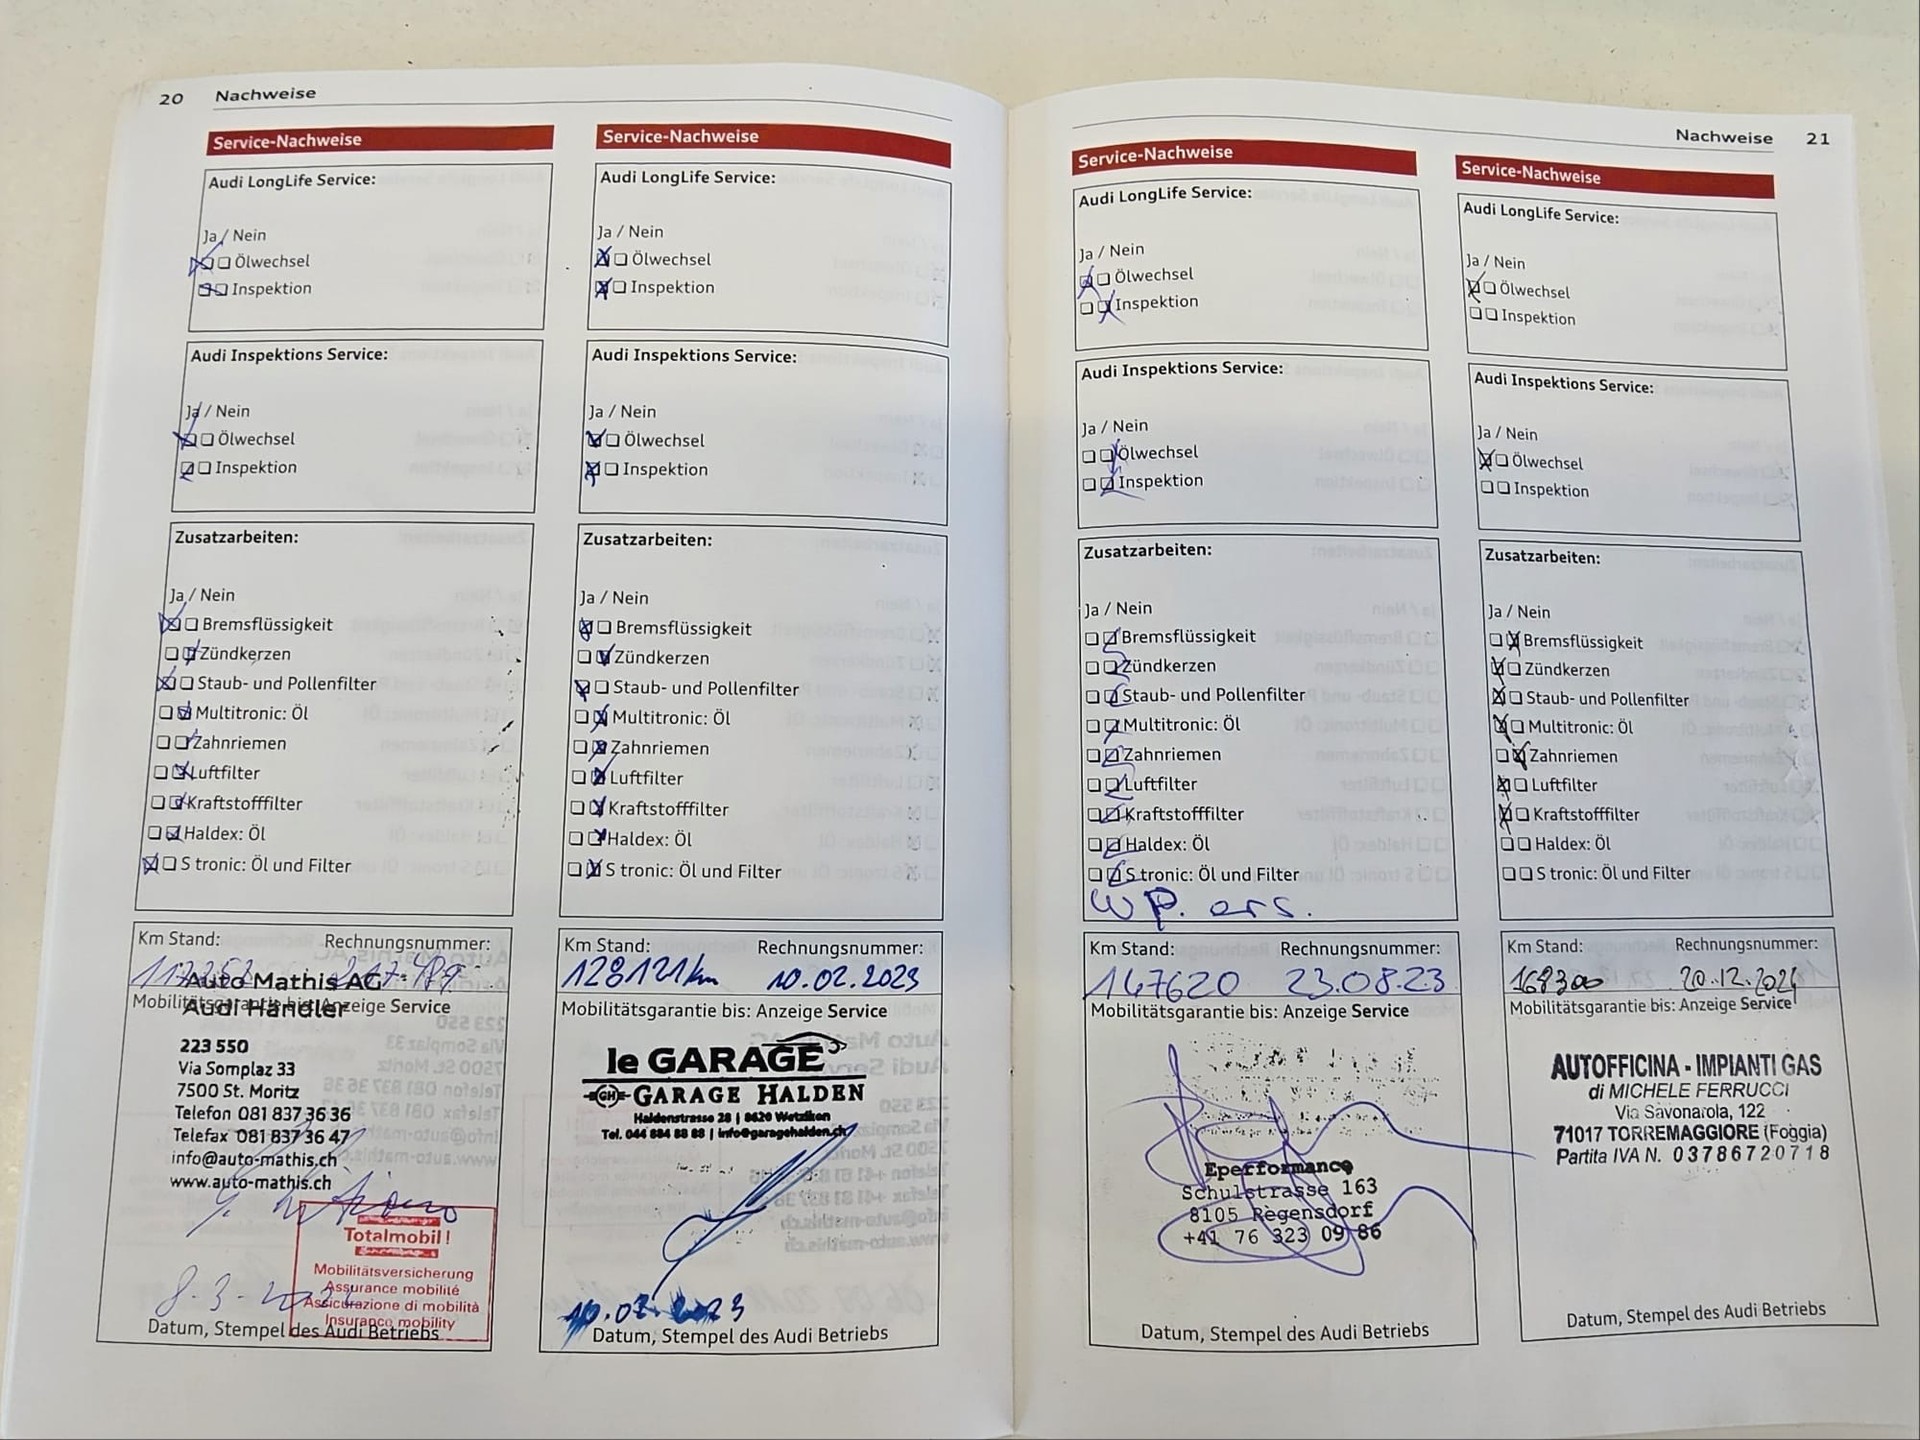 20 Nachweise
Service-Nachweise
Audi LongLife Service:
Ja / Nein
Ölwechsel
Inspektion
Audi Inspektions Service:
Ja / Nein
Ölwechsel
Inspektion
Zusatzarbeiten:
Ja / Nein
Bremsflüssigkeit
Zündkerzen
Staub- und Pollenfilter
Multitronic: Öl
Zahnriemen
Luftfilter
Kraftstofffilter
Haldex: Öl
S tronic: Öl und Filter
Km Stand: Rechnungsnummer:
Auto Mathis AG
Mobilitätsgarantie bis: Anzeige Service
Audi Händler
223 550
Via Somplaz 33
7500 St. Moritz
Telefon 081 837 36 36
Telefax 081 837 36 47
info@auto-mathis.ch
www.auto-mathis.ch
Totalmobil!
Mobilitätsversicherung
Assurance mobilité
Assicurazione di mobilità
Insurance mobility
Datum, Stempel des Audi Betriebs
Service-Nachweise
Audi LongLife Service:
Ja / Nein
Ölwechsel
Inspektion
Audi Inspektions Service:
Ja / Nein
Ölwechsel
Inspektion
Zusatzarbeiten:
Ja / Nein
Bremsflüssigkeit
Zündkerzen
Staub- und Pollenfilter
Multitronic: Öl
Zahnriemen
Luftfilter
Kraftstofffilter
Haldex: Öl
S tronic: Öl und Filter
Km Stand: Rechnungsnummer:
128121km 10.02.2023
Mobilitätsgarantie bis: Anzeige Service
le GARAGE
GH GARAGE HALDEN
Haldenstrasse 28 | 8620 Wetzikon
Tel. 044 884 88 88 | info@garagehalden.ch
10.02.2023
Datum, Stempel des Audi Betriebs
Nachweise 21
Service-Nachweise
Audi LongLife Service:
Ja / Nein
Ölwechsel
Inspektion
Audi Inspektions Service:
Ja / Nein
Ölwechsel
Inspektion
Zusatzarbeiten:
Ja / Nein
Bremsflüssigkeit
Zündkerzen
Staub- und Pollenfilter
Multitronic: Öl
Zahnriemen
Luftfilter
Kraftstofffilter
Haldex: Öl
S tronic: Öl und Filter
WP. ers.
Km Stand: Rechnungsnummer:
147620 23.08.23
Mobilitätsgarantie bis: Anzeige Service
Eperformance
Schulstrasse 163
8105 Regensdorf
+41 76 323 09 86
Datum, Stempel des Audi Betriebs
Service-Nachweise
Audi LongLife Service:
Ja / Nein
Ölwechsel
Inspektion
Audi Inspektions Service:
Ja / Nein
Ölwechsel
Inspektion
Zusatzarbeiten:
Ja / Nein
Bremsflüssigkeit
Zündkerzen
Staub- und Pollenfilter
Multitronic: Öl
Zahnriemen
Luftfilter
Kraftstofffilter
Haldex: Öl
S tronic: Öl und Filter
Km Stand: Rechnungsnummer:
168300 20.12.2024
Mobilitätsgarantie bis: Anzeige Service
AUTOFFICINA - IMPIANTI GAS
di MICHELE FERRUCCI
Via Savonarola, 122
71017 TORREMAGGIORE (Foggia)
Partita IVA N. 03786720718
Datum, Stempel des Audi Betriebs